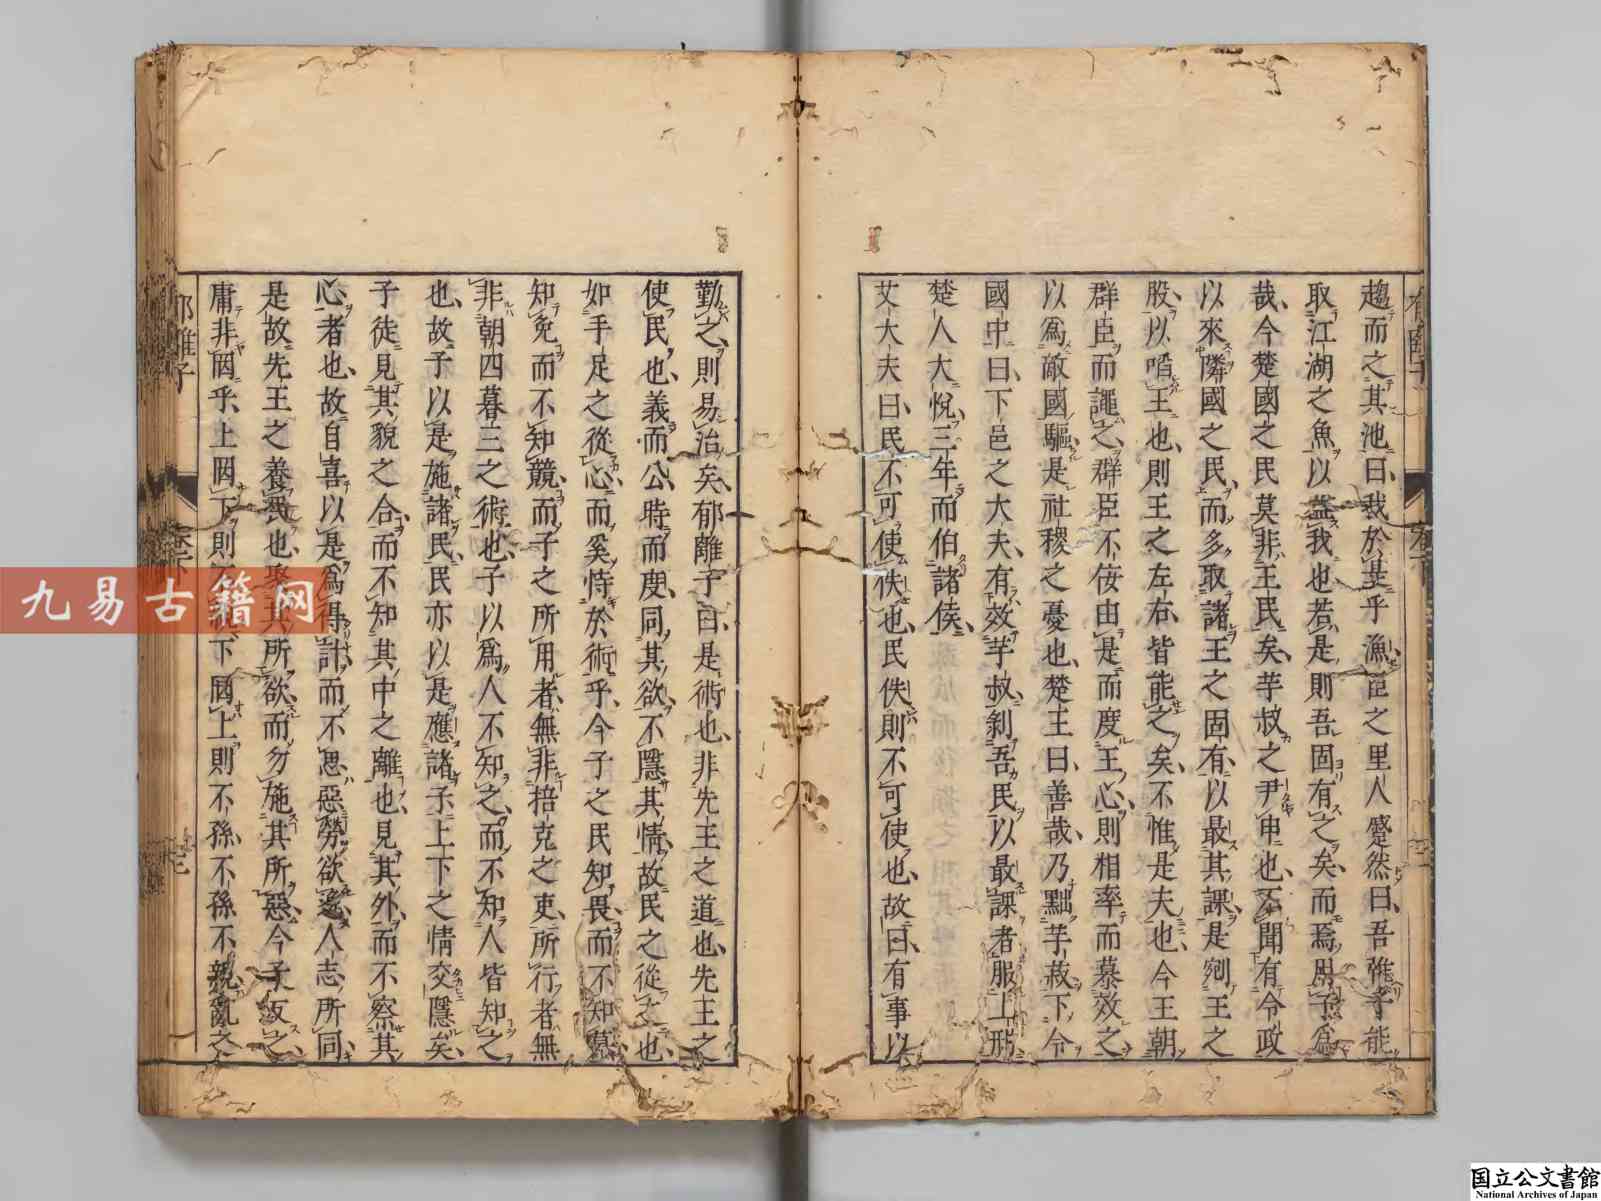 趨而之其池曰我於是乎漁臣之里人蹙然曰吾惟子能
取江湖之魚以益我也若是則吾固有之矣而焉用子爲
哉今楚國之民莫非王民矣芋叔之尹申也不聞有令政
以來隣國之民而多取諸王之固有以最其課是剜王之
股以啗王也則王之左右皆能之矣不惟是夫也今王朝
群臣而譝之群臣不佞由是而度王心則相率而慕效之
以爲敵國驅是社稷之憂也楚王曰善哉乃黜芋菽下令
國中曰下邑之大夫有效芋叔剥吾民以最課者服上刑
楚人大悅三年而伯諸侯
艾大夫曰民不可使佚也民佚則不可使也故曰有事以
勤之則易治矣郁離子曰是術也非先王之道也先王之
使民也義而公時而度同其欲不隱其情故民之從之也
如手足之從心而奚恃於術乎今子之民知畏而不知慕
知免而不知競而子之所用者無非掊克之吏所行者無
非朝四暮三之術也子以爲人不知之而不知人皆知之
也故子以是施諸民民亦以是應諸子上下之情交隱矣
子徒見其貌之合而不知其中之離也見其外而不察其
心者也故自喜以是爲得計而不思惡勞欲逸人志所同
是故先王之養民也聚其所欲而勿施其所惡今子反之
庸非罔乎上罔下則不親下罔上則不孫不孫不親亂之
郁離子
九易古籍网
国立公文書館
National Archives of Japan